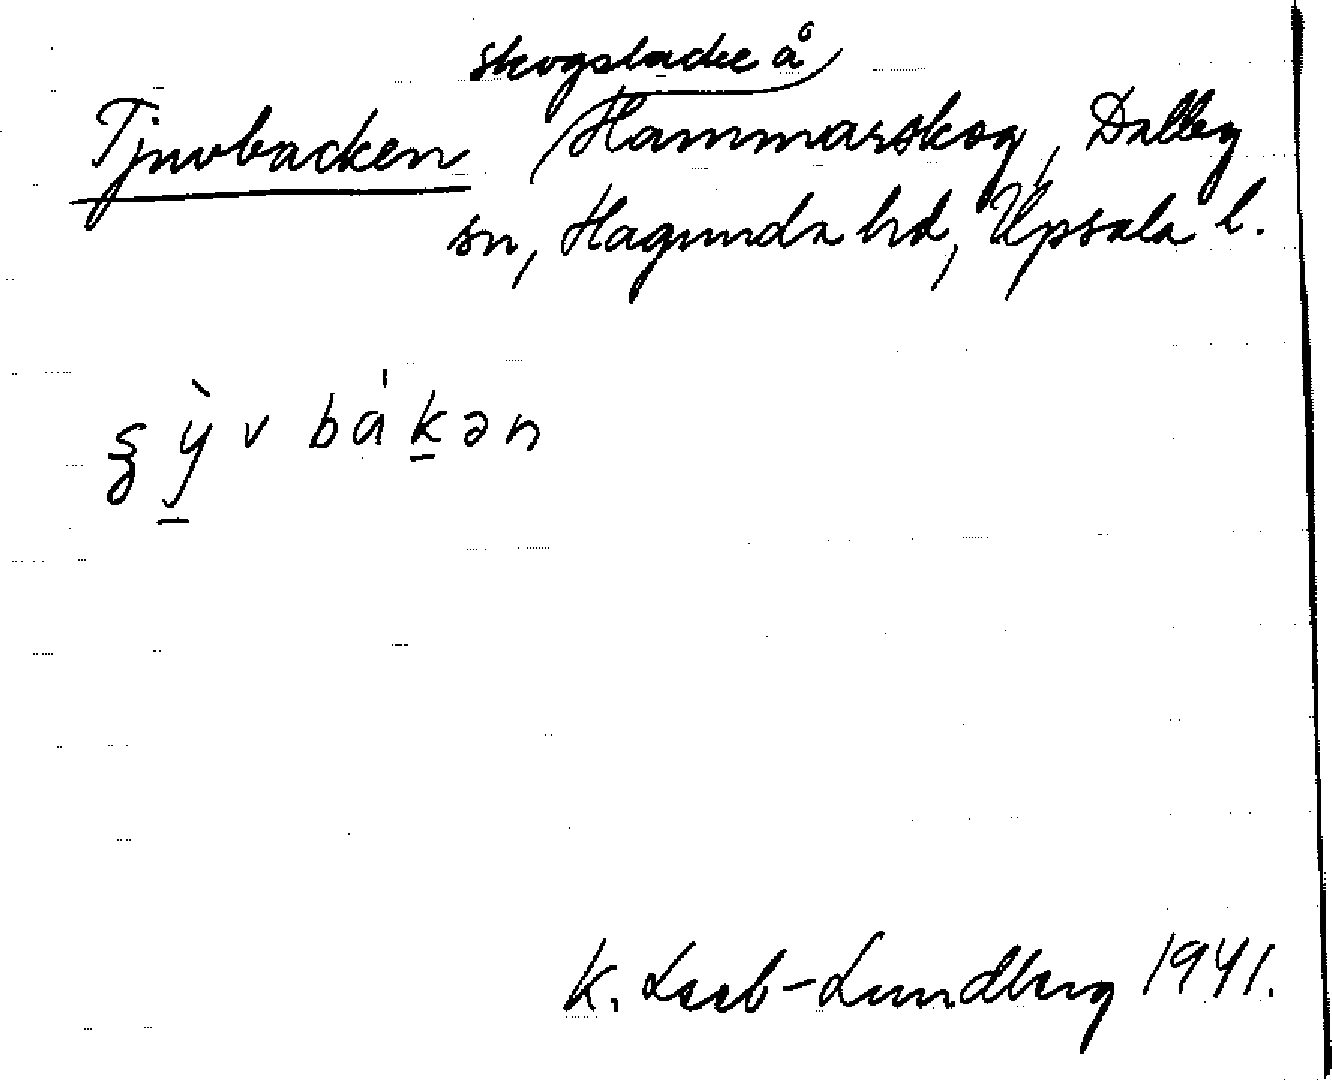 skogsbacke å
Tjuvbacken Hammarskog, Dalby
sn, Hagunda hd, Upsala l.
ṣ̌ỳ̱v bá'ḵən
K. Leeb-Lundberg 1941.